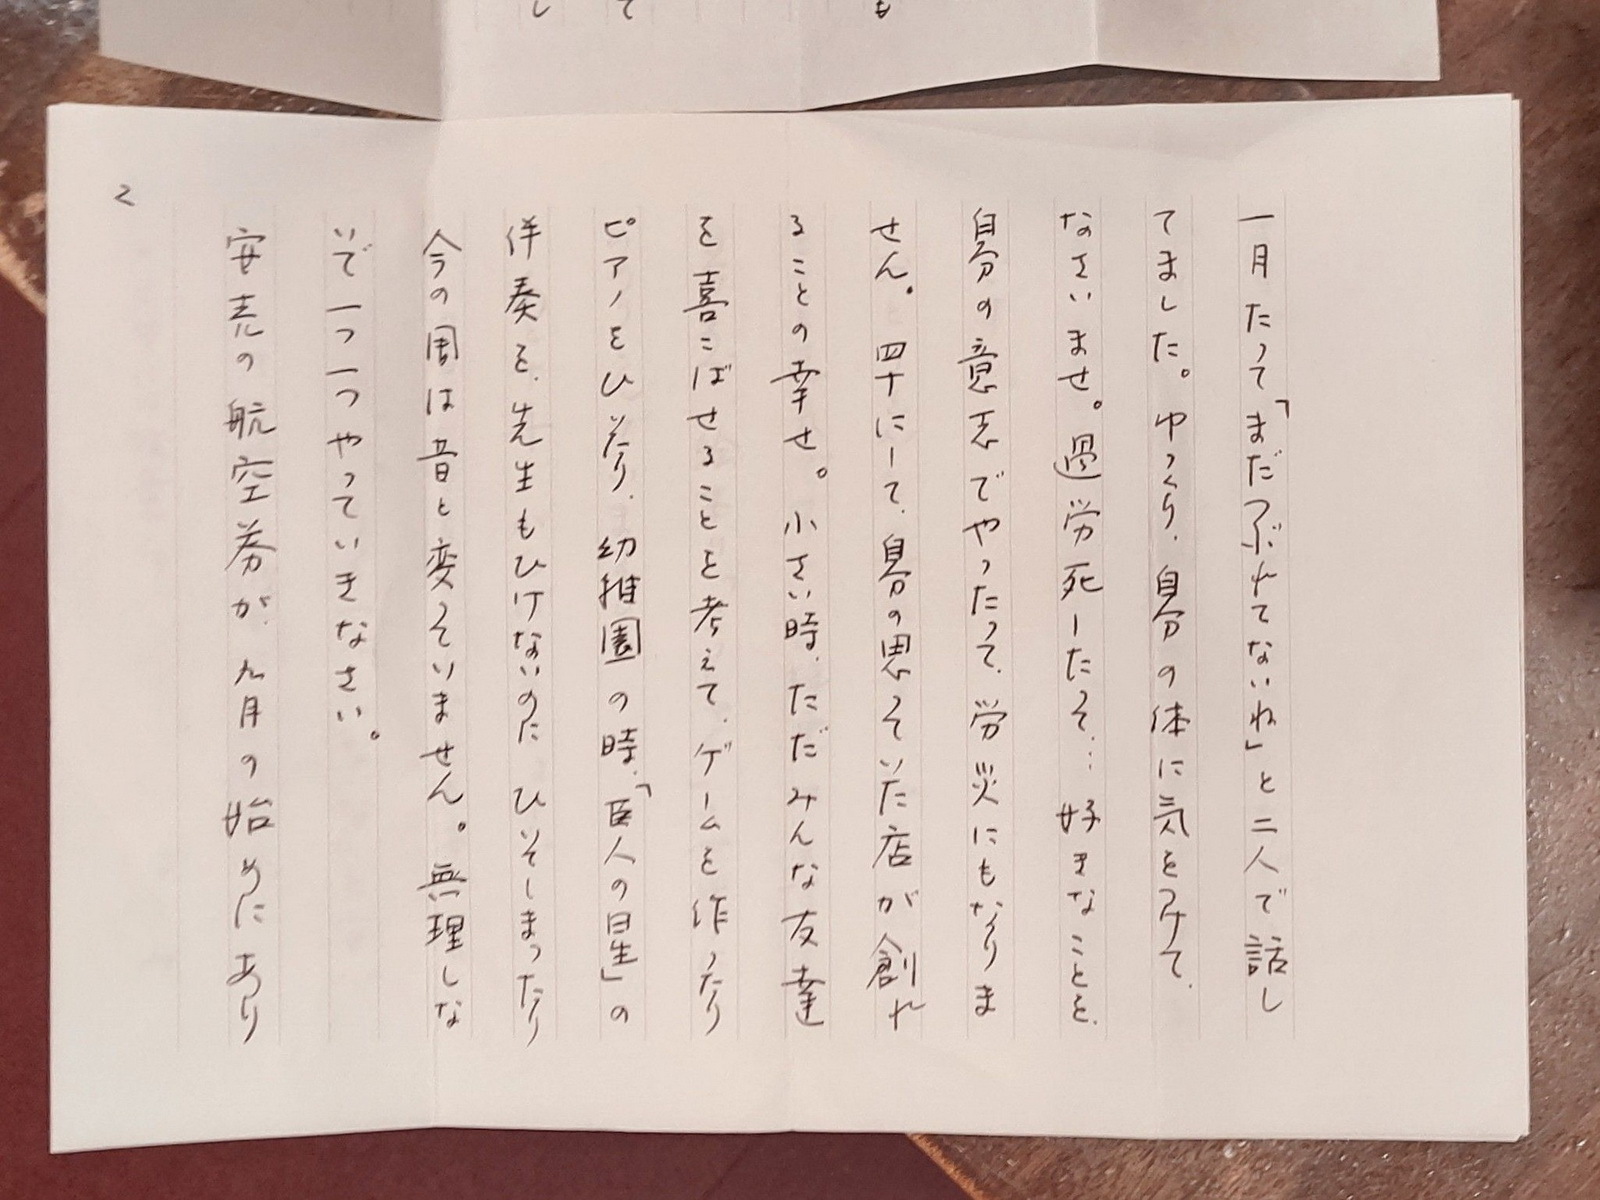 一月たって「まだつぶれてないね」と二人で話し
てました。ゆっくり、自分の体に気をつけて、
なさいませ。過労死したって…好きなことを、
自分の意志でやったって、労災にもなりま
せん。四十にして、自分の思っていた店が創れ
ることの幸せ。小さい時、ただみんな友達
を喜こばせることを考えて、ゲームを作ったり
ピアノをひいたり、幼稚園の時、「巨人の星」の
伴奏を、先生もひけないのに ひいてしまったり
今の周は昔と変っていません。無理しな
いで一つ一つやっていきなさい。
安売の航空券が、九月の始めにあり
2
し
て
も